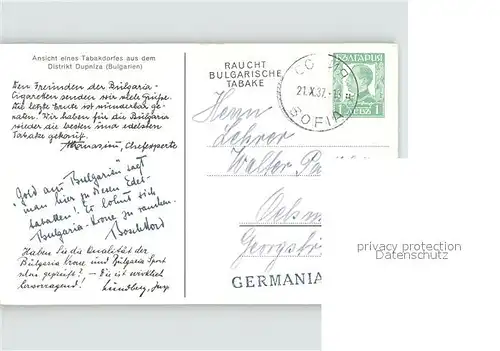 Ansicht eines Tabakdorfes aus dem
Distrikt Dupniza (Bulgarien)
Den Freunden der Bulgaria-
Cigaretten senden wir viele Grüße.
Die letzte Ernte ist wunderbar ge-
raten. Wir haben für die Bulgaria
wieder die besten und edelsten
Tabake gekauft.
Athanasiu, Chefexperte
"Gold aus Bulgarien" sagt
man hier zu diesen Edel-
tabaken! Es lohnt sich
Bulgaria-Krone zu rauchen.
Haben Sie die Qualität der
Bulgaria Krone und Bulgaria Sport
schon geprüft? – Sie ist wirklich
hervorragend!
Lundberg,
RAUCHT
BULGARISCHE
TABAKE
21.X.37.-18
SOFIA
БЪЛГАРИЯ
1 ЛЕВЪ 1
Herrn
Lehrer
Walter
Oelsn
Georgstr
GERMANIA
privacy protection
Datenschutz